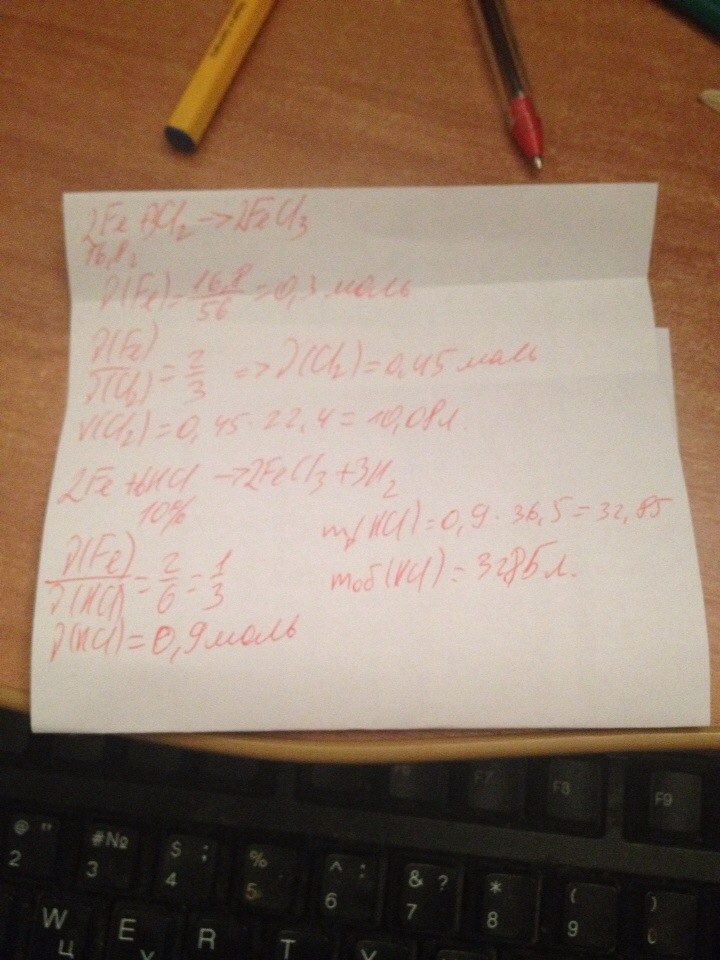 2Fe + 3Cl₂ → 2FeCl₃
16,8г
ν(Fe) = 16,8/56 = 0,3 моль
ν(Fe)/ν(Cl₂) = 2/3 => ν(Cl₂) = 0,45 моль
V(Cl₂) = 0,45 · 22,4 = 10,08 л.
2Fe + 6HCl → 2FeCl₃ + 3H₂
10%
ν(Fe)/ν(HCl) = 2/6 = 1/3
ν(HCl) = 0,9 моль
(HCl) = 0,9 · 36,5 = 32,85
mоб(HCl) = 328,5 л.
F7
F8
F9
@ "
2
# №
3
$ ;
4
%
5
^ :
6
& ?
7
*
8
(
9
)
W
Ц
E
R
T